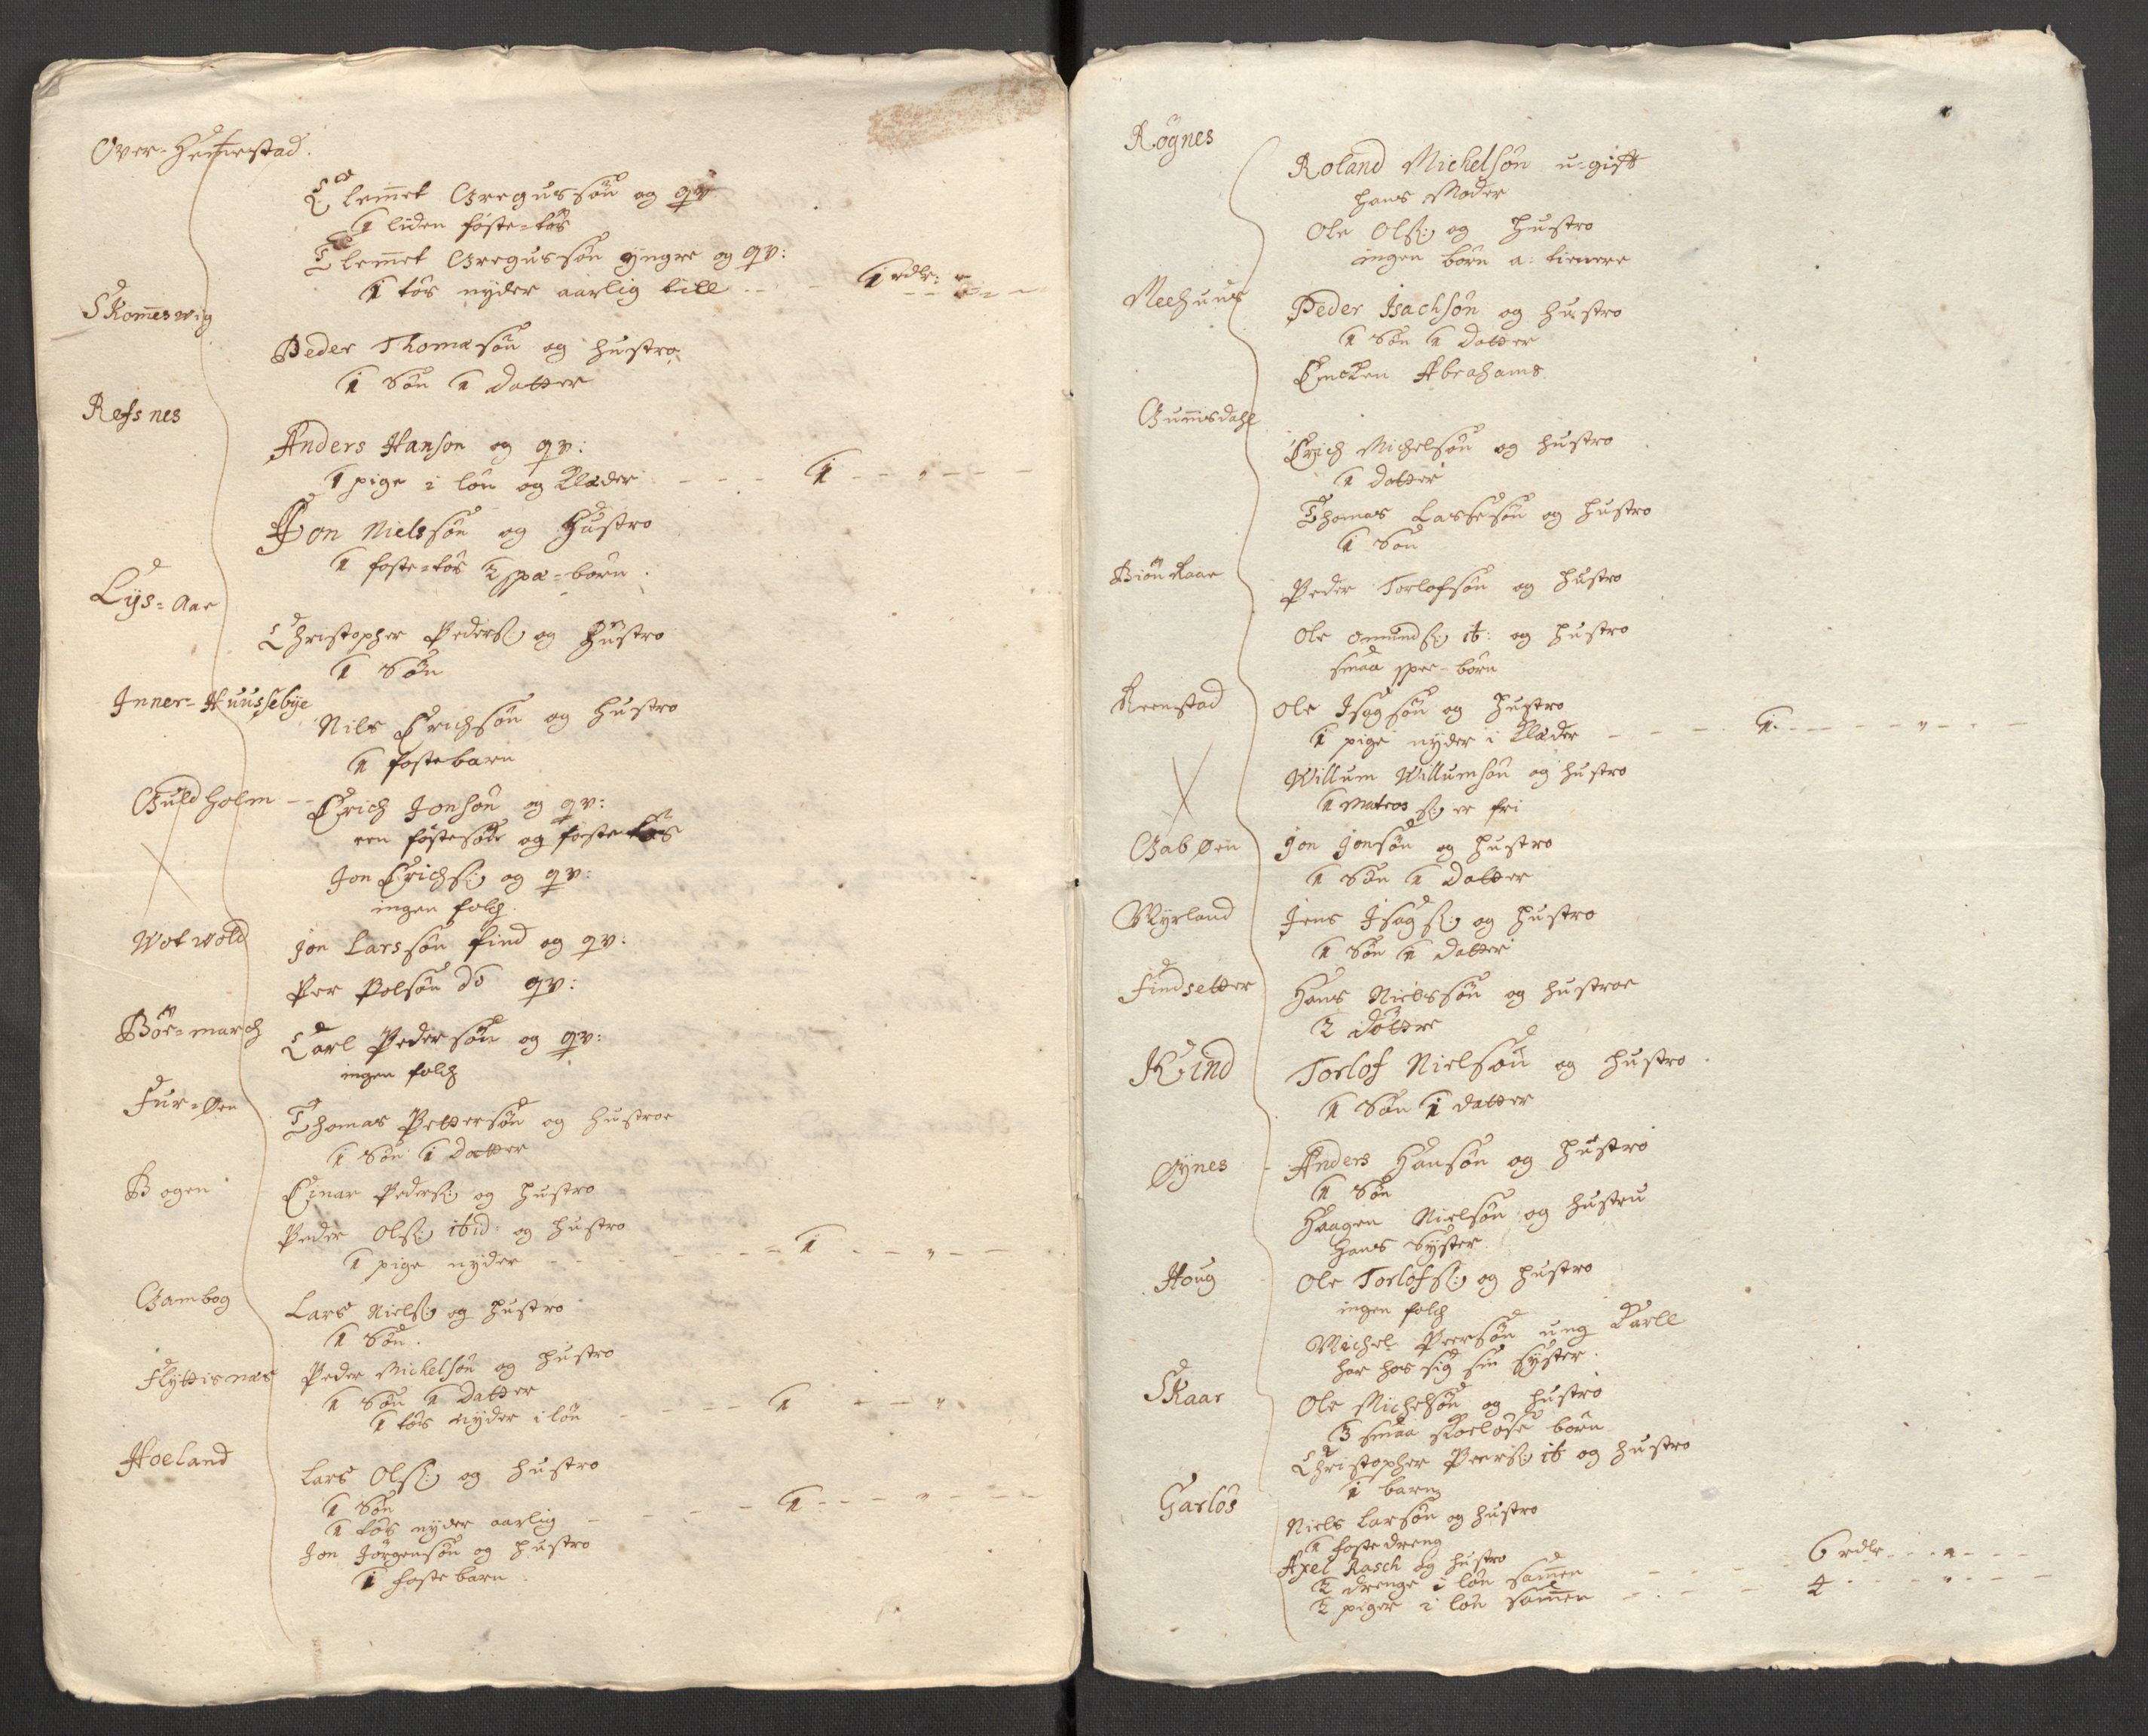 Over-Hemestad.
Clemet Gregussøn og qv
1 liden foster-tøs
Clemet Gregussøn yngre og qv:
1 tøs nyder aarlig till - - 1 rdlr: "
Skomeswig
Peder Thomæsøn og hustro
1 Søn 1 datter
Refsnes
Anders Hanson og qv:
1 pige i løn og Klæder - - - 1 - - " - - -
Jon Nielssøn og Hustro
1 foster-tøs 2 spæ-børn.
Lys-Aar
Christopher Peders: og Hustro
1 Søn
Inner-Huussebye
Nils Erichsøn og Hustro
1 fosterbarn
Guldholm - - Erich Jonsøn og qv:
een og foster tøs
Jon Erichs: og qv:
ingen folch
Wotwold
Jon Larssøn find og qv:
Per Polsøn do qv:
Bøe-march
Carl Pedersøn og qv:
ingen folch
Fur-Øen
Thomas Pettersøn og hustroe
1 Søn 1 Datter
Bogen
Einar Peders: og Hustro
Peder Ols: ibid: og Hustro
1 pige nyder - - - 1 - - " - -
Gambog
Lars Niels: og Hustro
1 Søn.
Flyttisnæs
Peder Michelsøn og Hustro
1 Søn 1 datter
1 tøs nyder i løn - - - - 1 - - "
Hoeland
Lars Ols: og hustro
1 Søn
1 tøs nyder aarlig - - - - 1 - - - " - - -
Jon Jørgensøn og Hustro
1 foster barn
Røgnes
Roland Michelsøn u-gift
hans Moder
Ole Ols: og Hustro
ingen børn a: tienere
Meehuus
Peder Isachsøn og hustro
1 Søn 1 Datter
Abrahams
Gunisdahl
Erich Michelsøn og hustro
1 datter
Thomas Lassesøn og hustro
1 Søn
Biønkaar
Peder Torlofsøn og hustro
Ole Omunds: it: og hustro
smaa spee-børn
Reenstad
Ole Isagsøn og Hustro
1 pige nyder i Klæder - - - 1. - - - - " - - -
Willum Willumsøn og hustro
1 Matros s: er fri
Gabøen
Jon Jonsøn og Hustro
1 Søn 1 Datter
Myrland
Jens Isags: og Hustro
1 Søn 1 datter
Findsetter
Hans Nielssøn og hustroe
2 døttre
Kind
Torlof Nielsøn og hustro
1 Søn 1 datter
Øynes
Anders Hansøn og Hustro
1 Søn
Haagen Nielsøn og hustru
Hans Syster.
Houg
Ole Torlofs: og Hustro
ingen folch
Michel Peersøn ung Karll
har hos sig sin syster.
Skaar
Ole Michelsøn og Hustro
3 smaa børn
Christopher Peers: it og Hustro
1 barn
Harløs
Niels Larsøn og Hustro
1 fosterdreng
Axel Rasch og Hustro
2 drenge i løn samen - - - 6 rdlr - - " - - -
2 piger i løn samen - - - 4 - - - " - - -